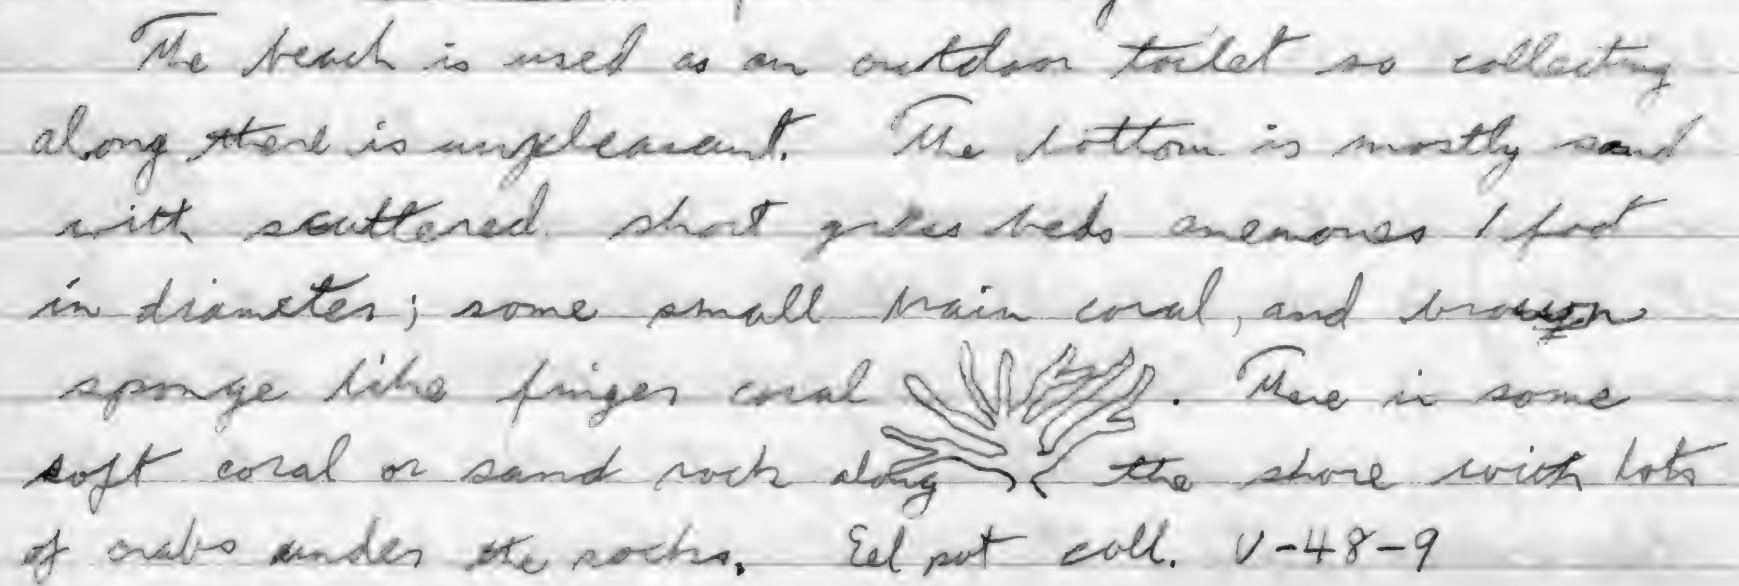 The beach is used as an outdoor toilet so collecting
along there is unpleasant. The bottom is mostly sand
with scattered short grass beds anemones 1 foot
in diameter; some small brain coral, and brown
sponge like finger coral . There is some
soft coral or sand rock along the shore with lots
of crabs under the rocks. Eel put coll. V-48-9